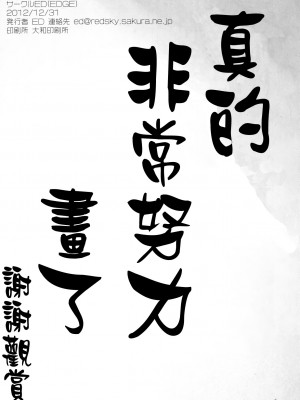 サークルED(EDGE)
2012/12/31
発行者 ED 連絡先 ed@redsky.sakura.ne.jp
印刷所 大和印刷所
真的
非常努力
畫了
謝謝觀賞